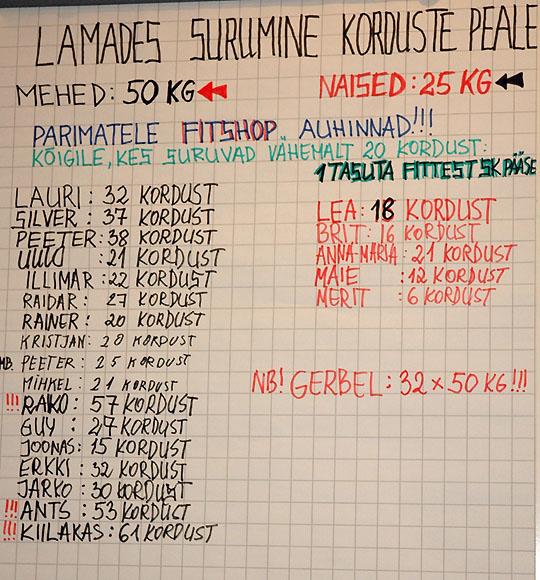 LAMADES SURUMINE KORDUSTE PEALE
MEHED: 50 KG
NAISED: 25 KG
PARIMATELE FITSHOP AUHINNAD!!!
KÕIGILE, KES SURUVAD VÄHEMALT 20 KORDUST:
1 TASUTA FITTEST SK PÄÄSE
LAURI: 32 KORDUST
SILVER: 37 KORDUST
PEETER: 38 KORDUST
: 21 KORDUST
ILLIMAR: 22 KORDUST
RAIDAR: 27 KORDUST
RAINER: 20 KORDUST
KRISTJAN: 28 KORDUST
MB. PEETER: 25 KORDUST
MIHKEL: 21 KORDUST
!!! RAKO: 57 KORDUST
GUY: 27 KORDUST
JOONAS: 15 KORDUST
ERKKI: 32 KORDUST
JARKO: 30 KORDUST
!!! ANTS: 53 KORDUST
!!! KIILAKAS: 61 KORDUST
LEA: 18 KORDUST
BRIT: 16 KORDUST
ANNA-MARIA: 21 KORDUST
MAIE: 12 KORDUST
MERIT: 6 KORDUST
NB! GERBEL: 32 x 50 KG!!!